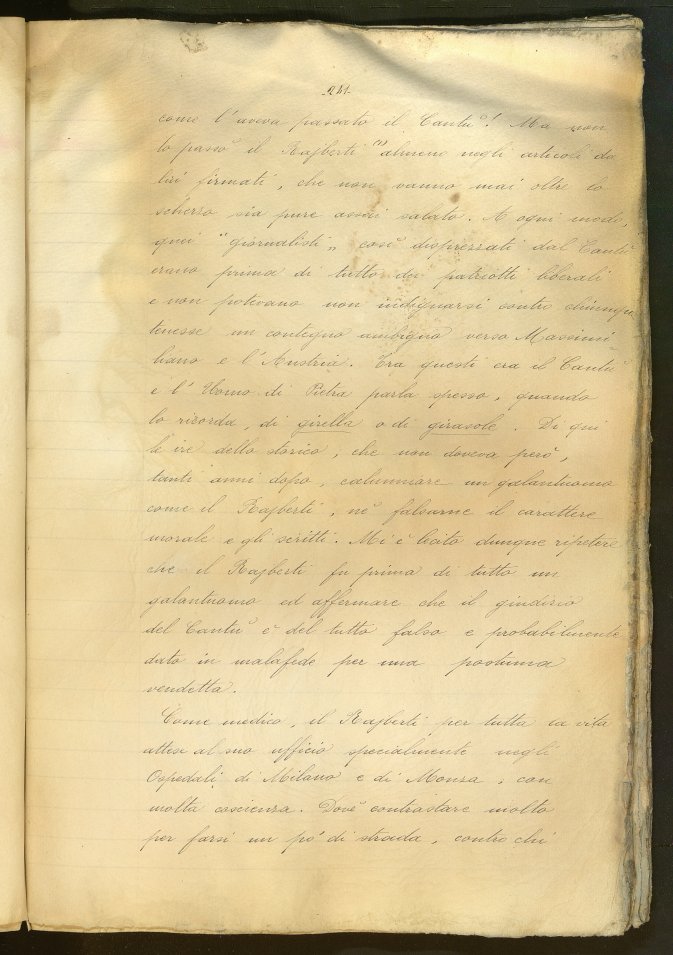 -241-
come l'aveva passato il Cantù! Ma non
lo passò il Rajberti (1) almeno negli articoli da
lui firmati, che non vanno mai oltre lo
scherzo sia pure assai salato. A ogni modo,
quei "giornalisti" così disprezzati dal Cantù
erano prima di tutto dei patriotti liberali
e non potevano non indignarsi contro chiunque
tenesse un contegno ambiguo verso Massimi
liano e l'Austria. Tra questi era il Cantù
e l'Uomo di Pietra parla spesso, quando
lo ricorda, di girella o di girasole. Di qui
le ire dello storico, che non doveva però,
tanti anni dopo, calunniare un galantuomo
come il Rajberti, nè falsarne il carattere
morale e gli scritti. Mi è lecito dunque ripetere
che il Rajberti fu prima di tutto un
galantuomo ed affermare che il giudizio
del Cantù è del tutto falso e probabilmente
dato in malafede per una postuma
vendetta.
Come medico, il Rajberti per tutta la vita
attese al suo ufficio specialmente negli
Ospedali di Milano e di Monza, con
molta coscienza. Dovè contrastare molto
per farsi un po' di strada, contro chi